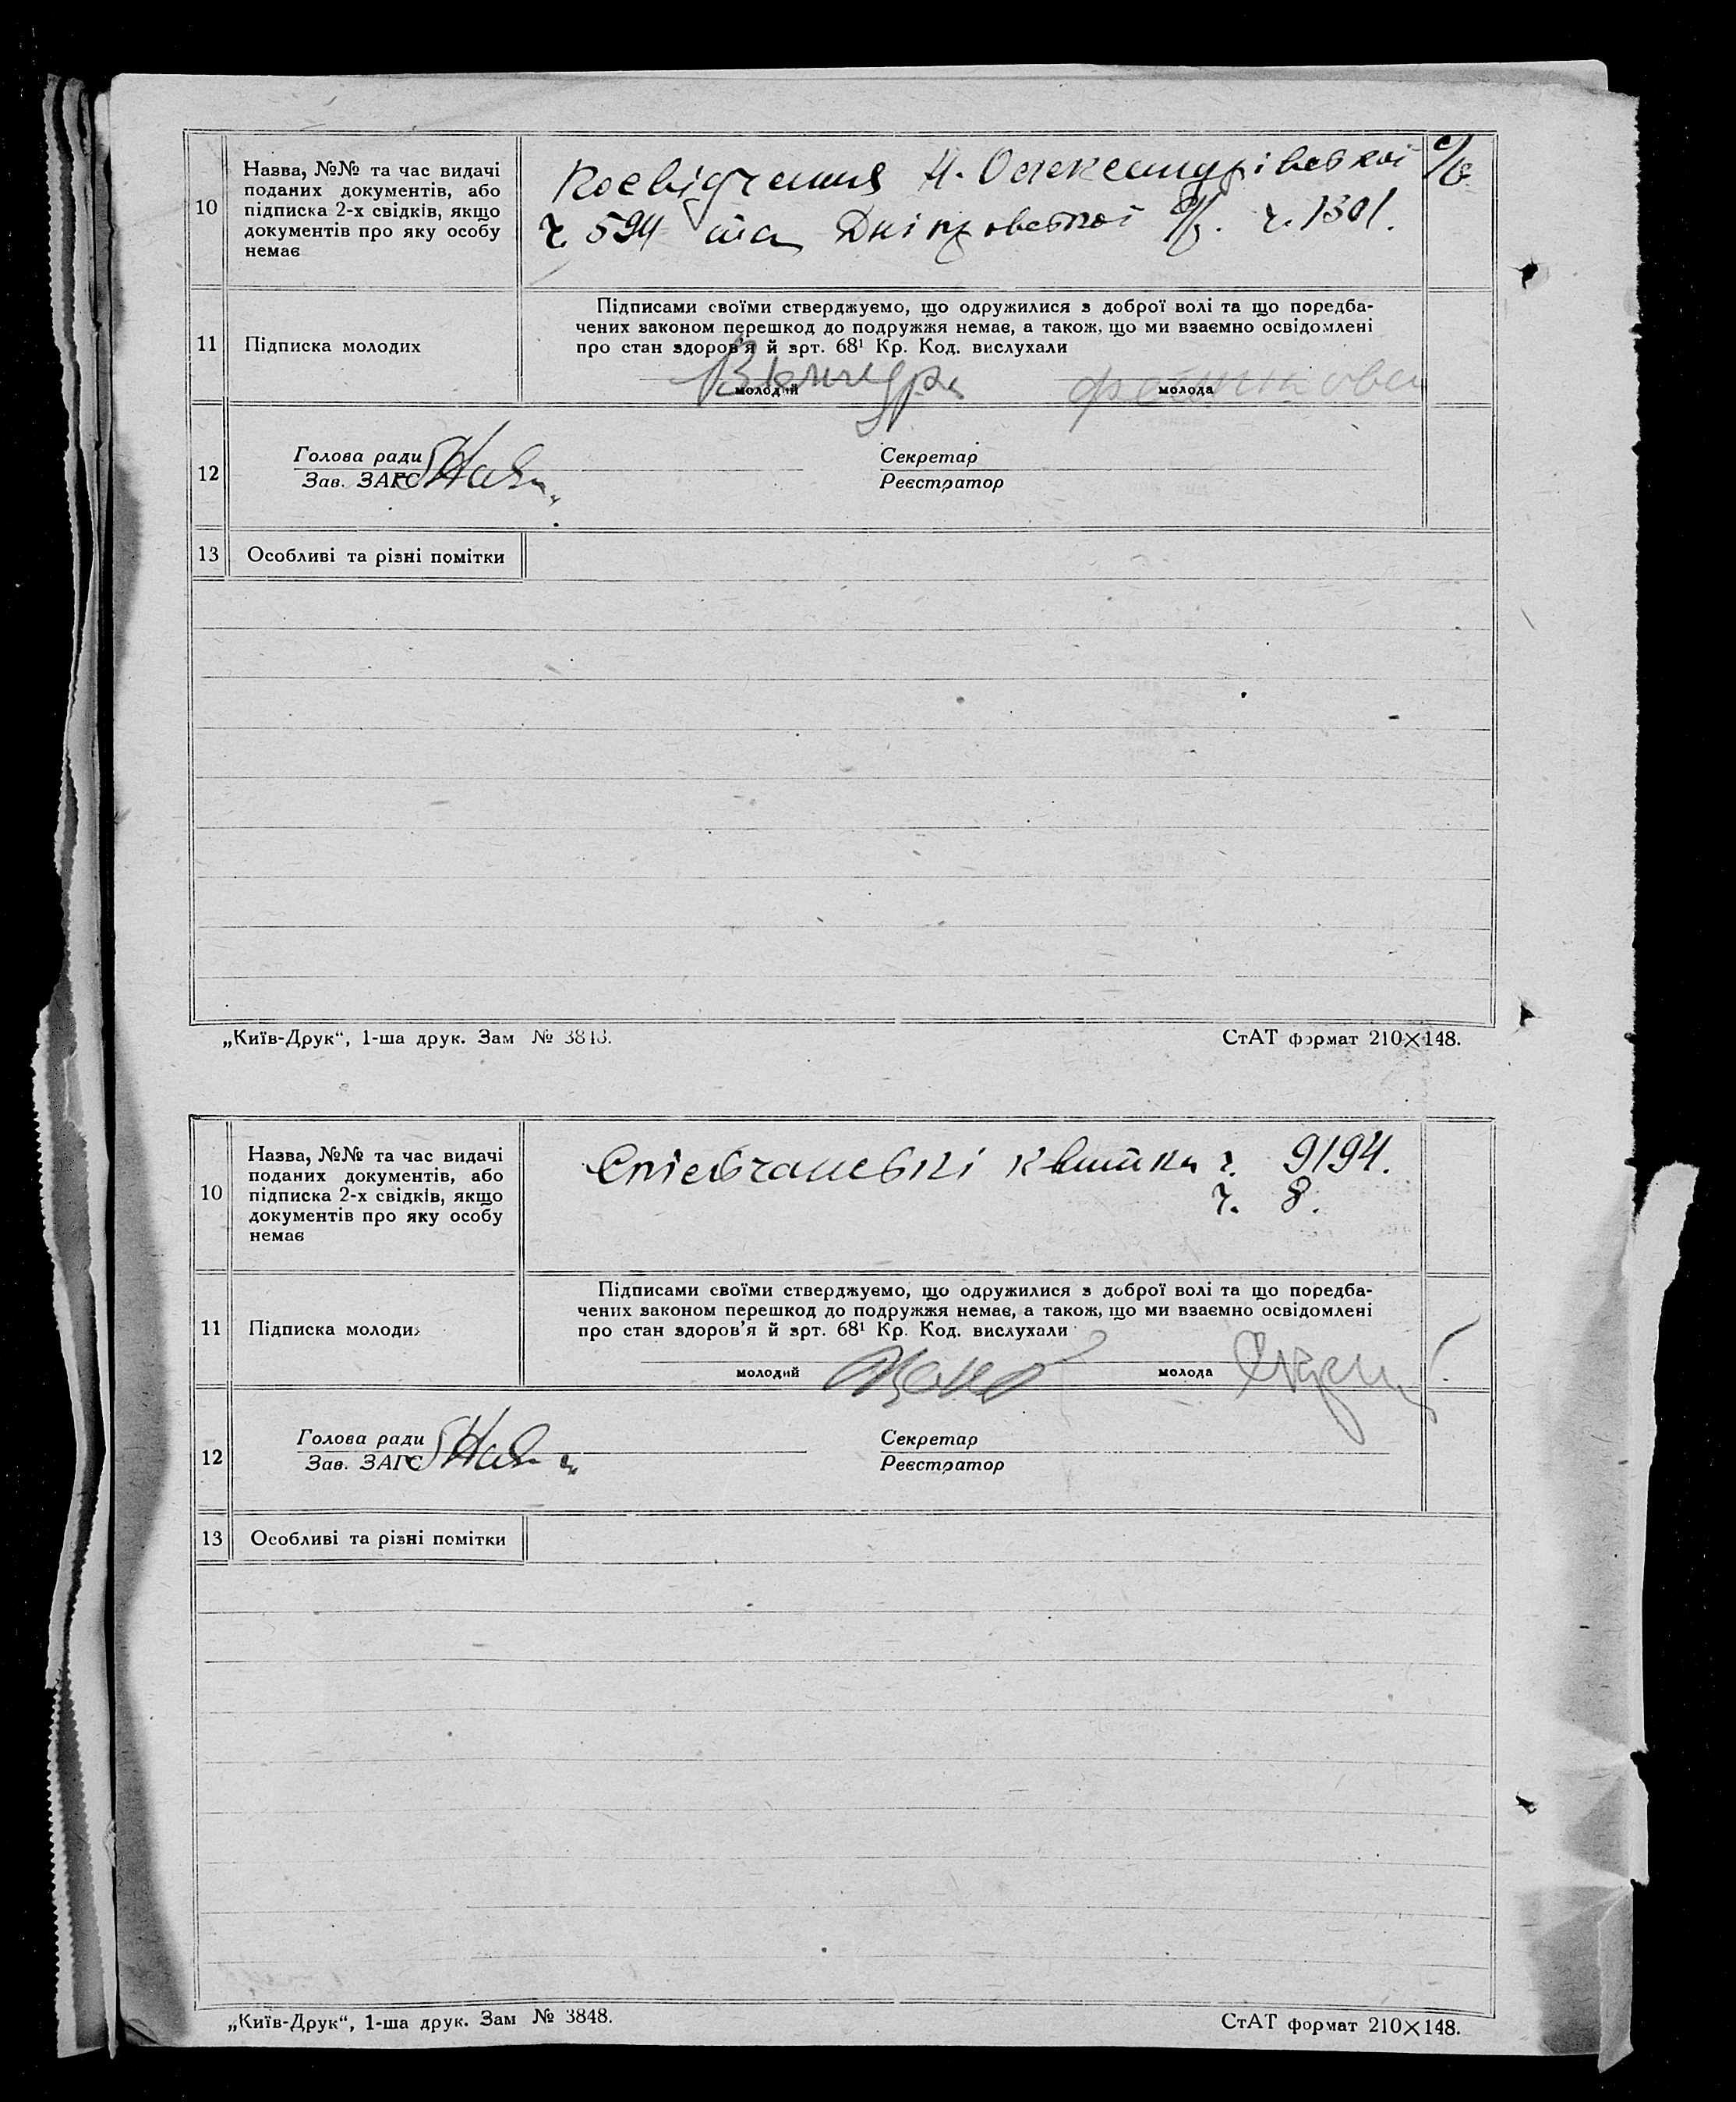 10
Назва, №№ та час видачі
поданих документів, або
підписка 2-х свідків, якщо
документів про яку особу
немає
Посвідчення Н. Олександрівської с/р
ч 594 та Дніпровської с/р. ч. 1301.
11
Підписка молодих
Підписами своїми стверджуємо, що одружилися з доброї волі та що поредба-
чених законом перешкод до подружжя немає, а також, що ми взаємно освідомлені
про стан здоров'я й арт. 68¹ Кр. Код. вислухали
молодий
молода
12
Голова ради
Зав. ЗАГС
Секретар
Реєстратор
13
Особливі та різні помітки
„Київ-Друк“, 1-ша друк. Зам № 3848.
СтАТ формат 210×148.
10
Назва, №№ та час видачі
поданих документів, або
підписка 2-х свідків, якщо
документів про яку особу
немає
Спілчанські квитки ч. 9194.
ч. 8.
11
Підписка молодих
Підписами своїми стверджуємо, що одружилися з доброї волі та що поредба-
чених законом перешкод до подружжя немає, а також, що ми взаємно освідомлені
про стан здоров'я й арт. 68¹ Кр. Код. вислухали
молодий
молода
12
Голова ради
Зав. ЗАГС
Секретар
Реєстратор
13
Особливі та різні помітки
„Київ-Друк“, 1-ша друк. Зам № 3848.
СтАТ формат 210×148.